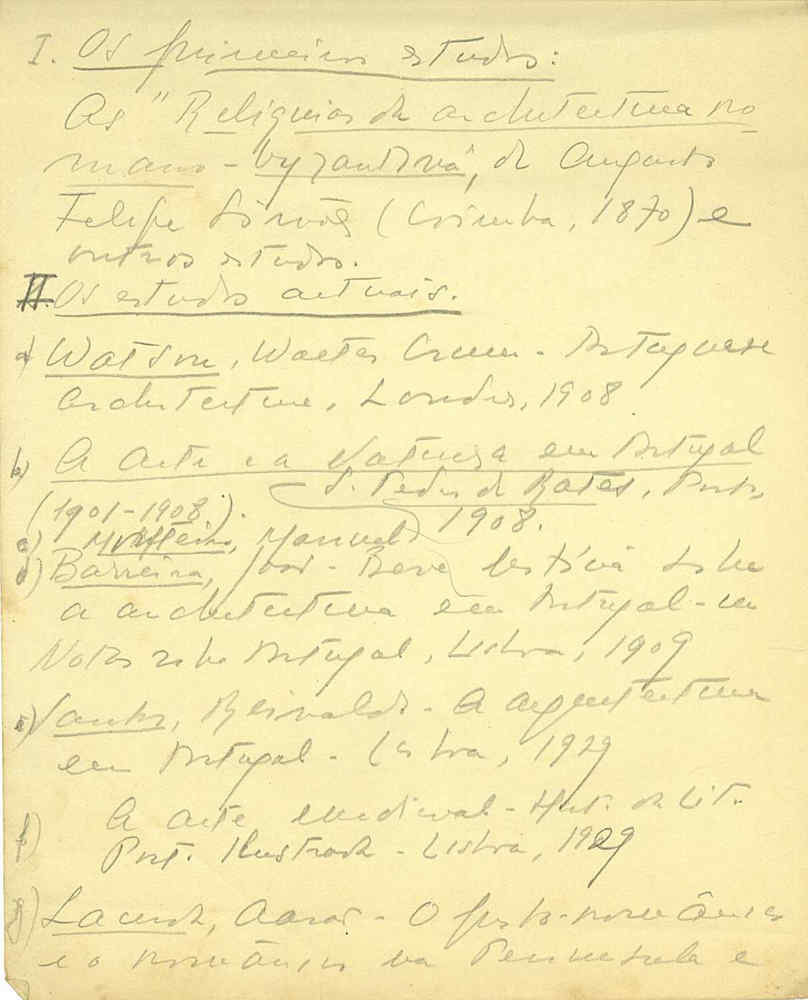 I. Os primeiros estudos:
As "Reliquias da architectura ro-
mano-byzantina", de Augusto
Felipe Simões (Coimbra, 1870) e
outros estudos.
II. Os estudos actuais.
a) Watson, Walter Crum - Portuguese
architecture, Londres, 1908
b) A Arte e a Natureza em Portugal
(1901-1908).
c) Monteiro, Manuel S. Pedro de Rates, Porto,
1908.
d) Barreira, João - Breve história sobre
a architectura em Portugal - in
Notas sobre Portugal, Lisboa, 1909
e) Santos, Reinaldo - A arquitectura
em Portugal - Lisboa, 1929
f) A arte medieval - Hist. da Lit.
Port. Ilustrada - Lisboa, 1929
g) Lacerda, Aarão - O proto-românico
e o românico na Peninsula e